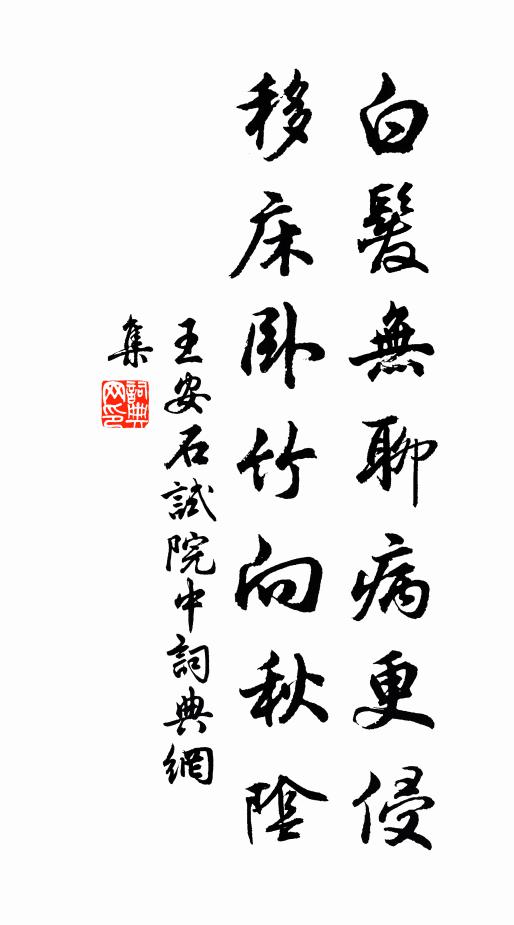 白髮無聊病更侵
移床臥竹向秋陰
王安石試院中詞典網
集
詞典
网印